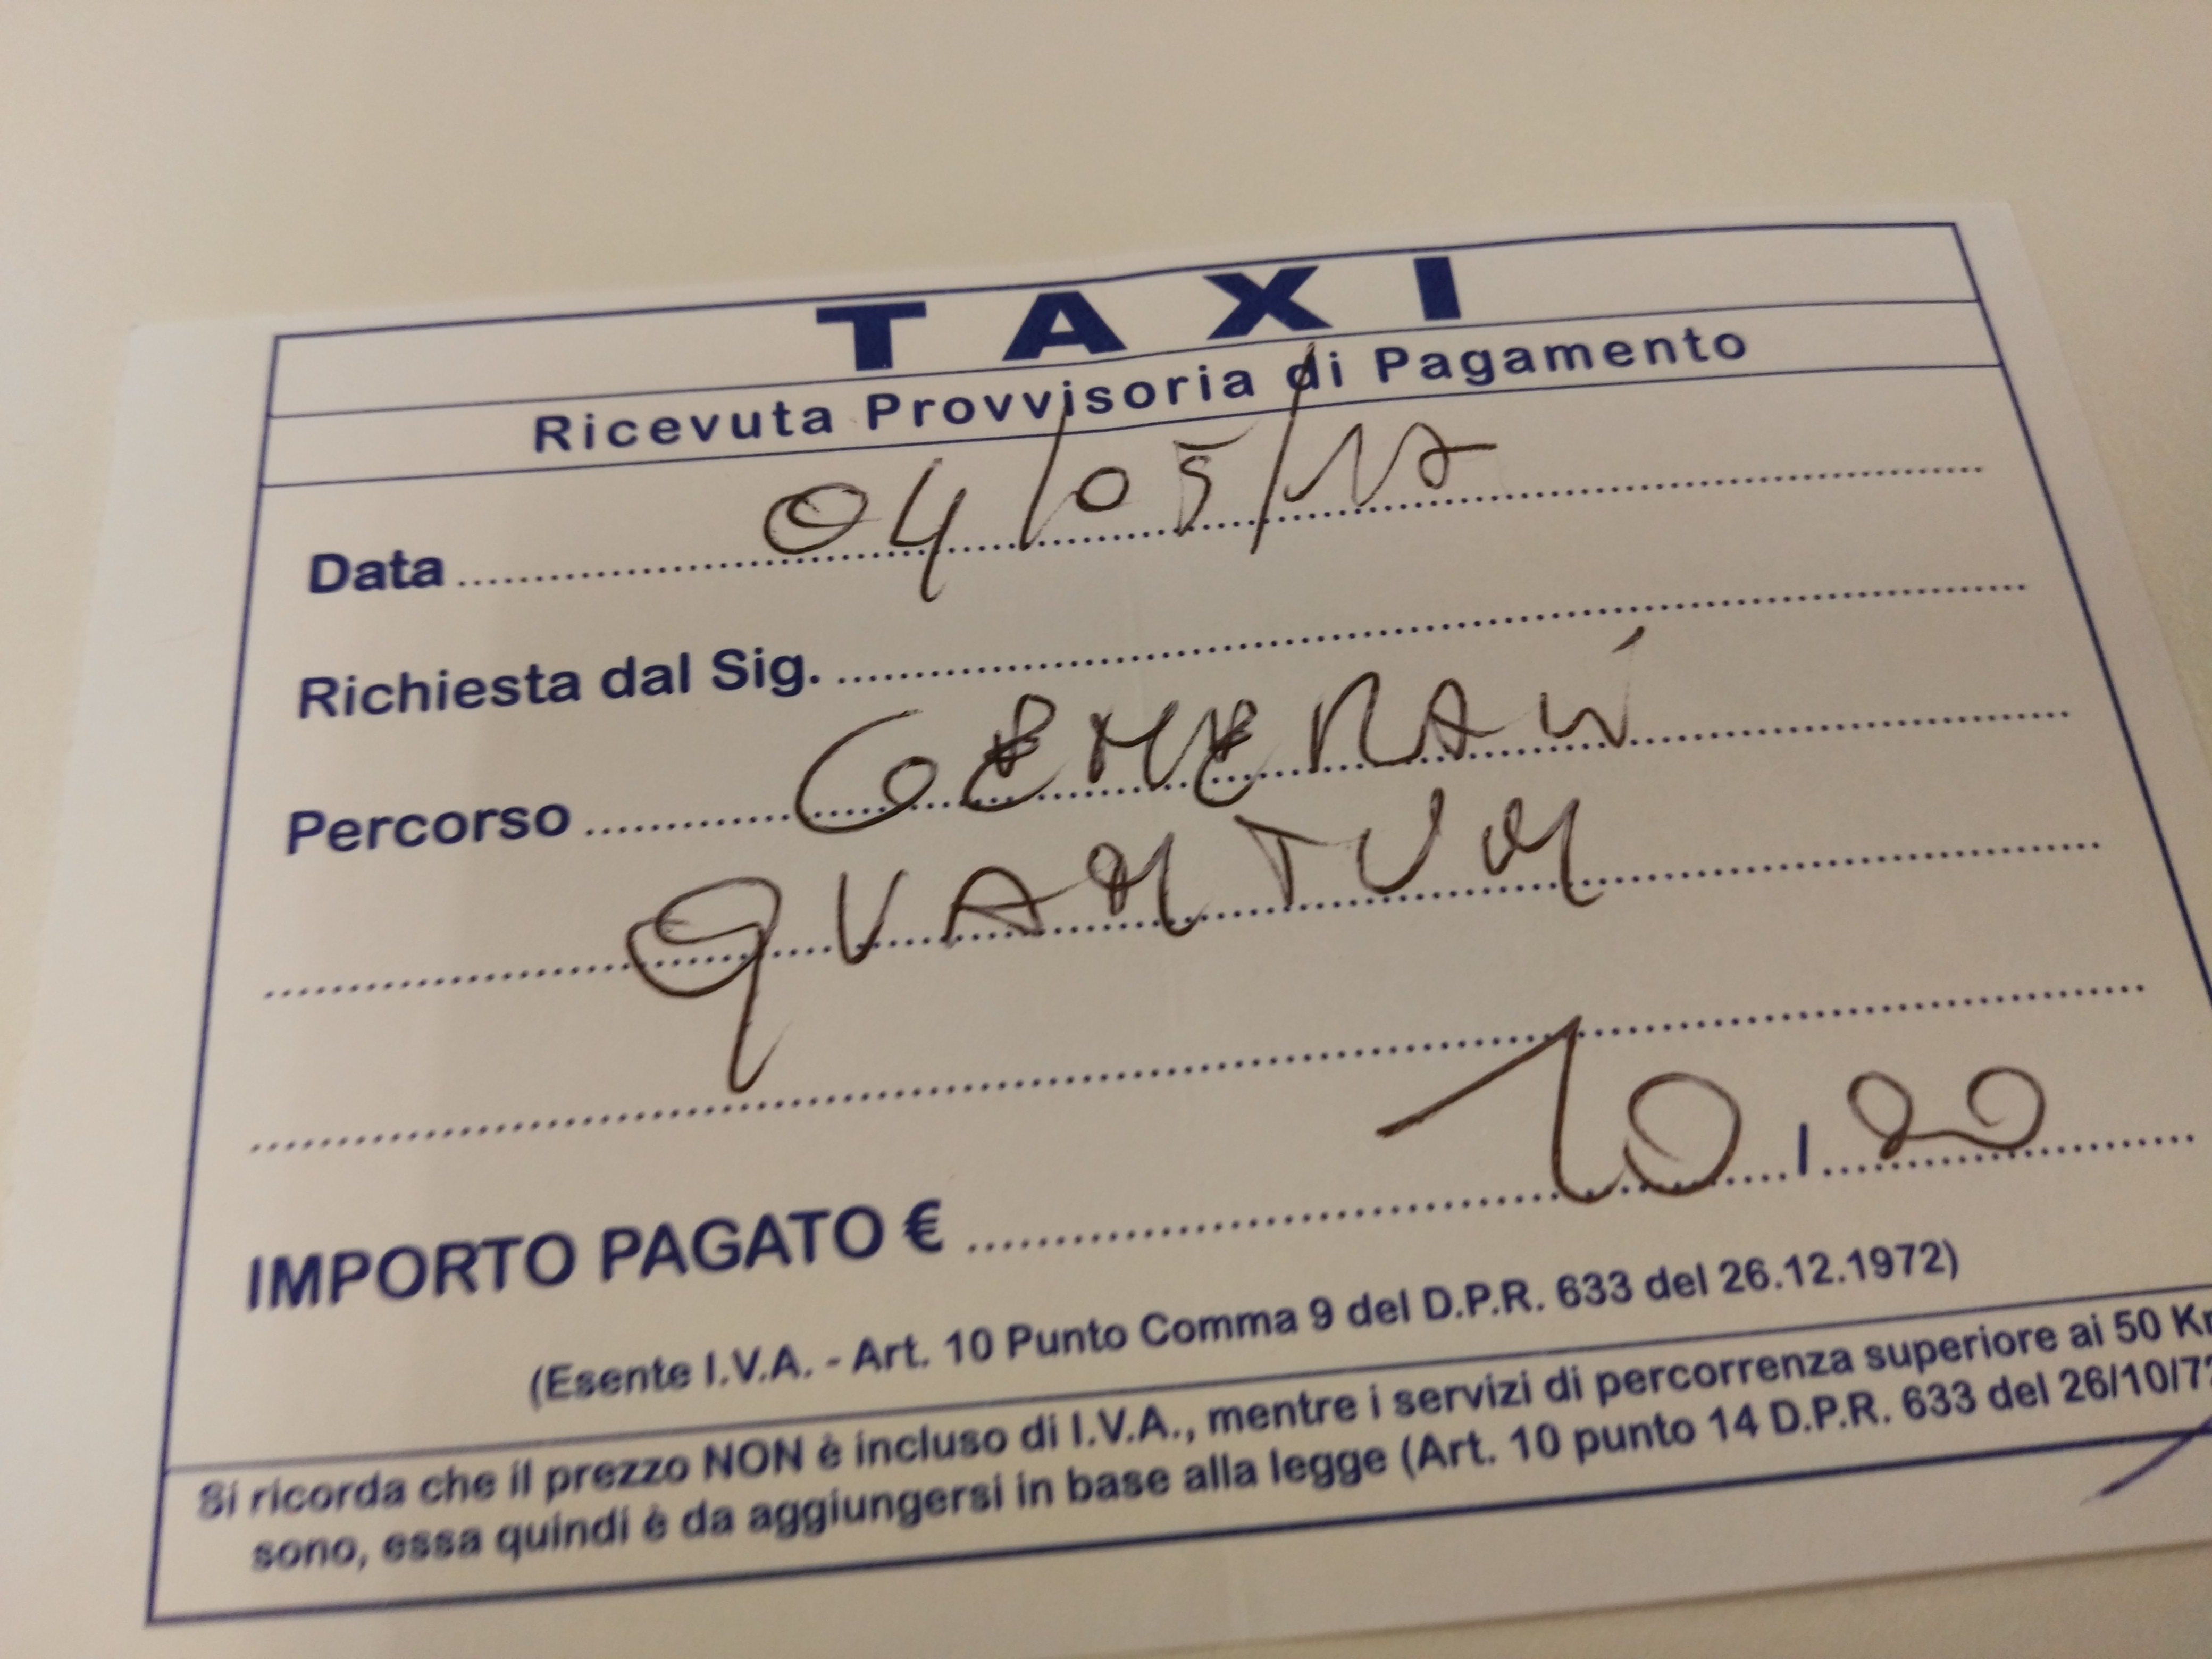 TAXI
Ricevuta Provvisoria di Pagamento
Data 04/05/17
Richiesta dal Sig.
Percorso GENERALI
QUANTUM
IMPORTO PAGATO € 10,00
(Esente I.V.A. - Art. 10 Punto Comma 9 del D.P.R. 633 del 26.12.1972)
Si ricorda che il prezzo NON è incluso di I.V.A., mentre i servizi di percorrenza superiore ai 50
sono, essa quindi è da aggiungersi in base alla legge (Art. 10 punto 14 D.P.R. 633 del